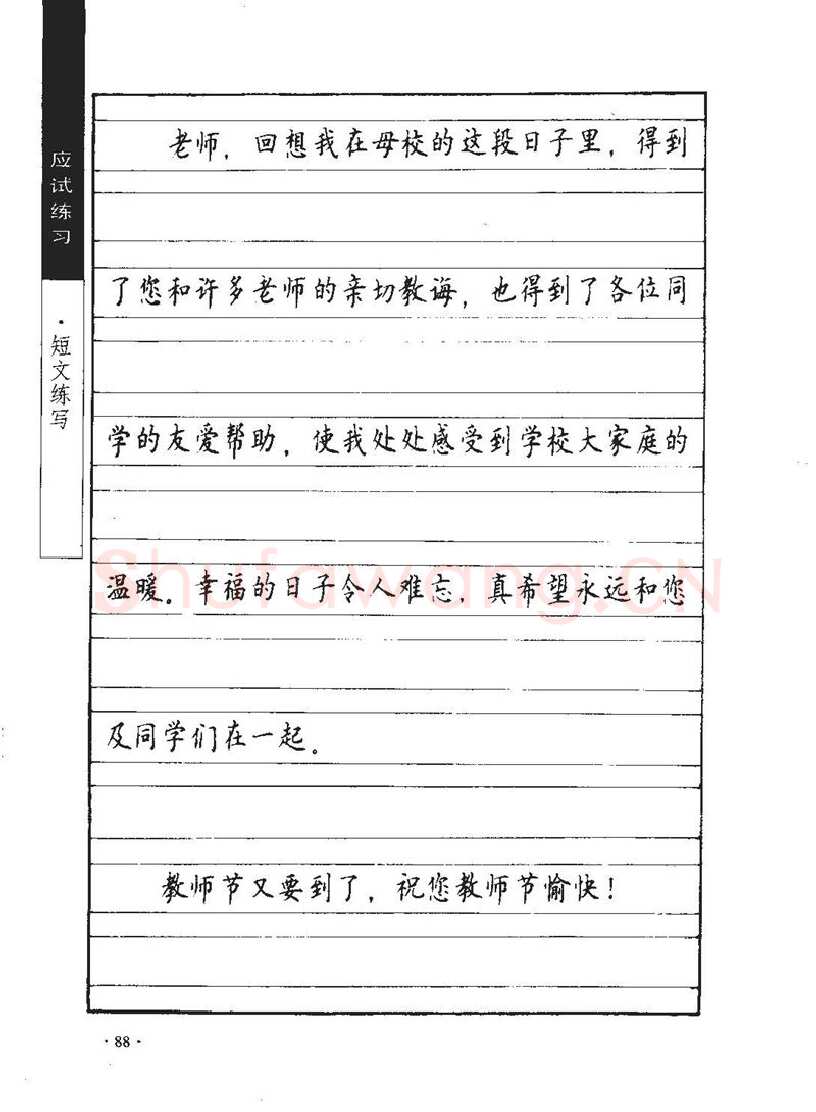 应试练习
·短文练写
老师，回想我在母校的这段日子里，得到
了您和许多老师的亲切教诲，也得到了各位同
学的友爱帮助，使我处处感受到学校大家庭的
温暖。幸福的日子令人难忘，真希望永远和您
及同学们在一起。
教师节又要到了，祝您教师节愉快！
·88·
Shufawang.CN